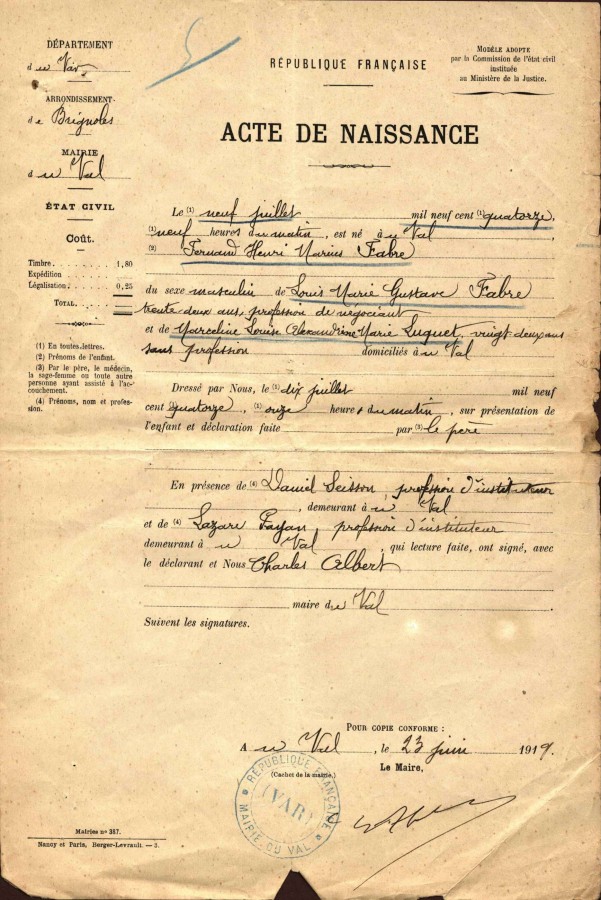 DÉPARTEMENT
du Var
ARRONDISSEMENT
de Brignoles
MAIRIE
du Val
ÉTAT CIVIL
Coût.
Timbre. . . . . . 1,80
Expédition . . . .
Légalisation. . . . 0,25
TOTAL. . . .
(1) En toutes lettres.
(2) Prénoms de l'enfant.
(3) Par le père, le médecin,
la sage-femme ou toute autre
personne ayant assisté à l'ac-
couchement.
(4) Prénoms, nom et profes-
sion.
RÉPUBLIQUE FRANÇAISE
MODÈLE ADOPTÉ
par la Commission de l'état civil
instituée
au Ministère de la Justice.
ACTE DE NAISSANCE
Le (1) neuf juillet mil neuf cent (1) quatorze,
(1) neuf heures du matin, est né à u Val,
(2) Fernand Henri Marius Fabre
du sexe masculin de Louis Marie Gustave Fabre
trente deux ans, profession de négociant
et de Marceline Louise Alexandrine Marie Luquet, vingt deux ans
sans profession domiciliés à u Val
Dressé par Nous, le dix juillet mil neuf
cent quatorze, (1) onze heures du matin, sur présentation de
l'enfant et déclaration faite par (3) le père
En présence de (4) Daniel Seisson, profession d'instituteur
, demeurant à u Val
et de (4) Lazare Fayan, profession d'instituteur
demeurant à u Val, qui lecture faite, ont signé, avec
le déclarant et Nous Charles Albert
maire du Val
Suivent les signatures.
POUR COPIE CONFORME :
A u Val, le 23 juin 1919.
(Cachet de la mairie.)
Le Maire,
RÉPUBLIQUE FRANÇAISE
(VAR)
MAIRIE DU VAL
Mairies n° 387.
Nancy et Paris, Berger-Levrault. — 3.